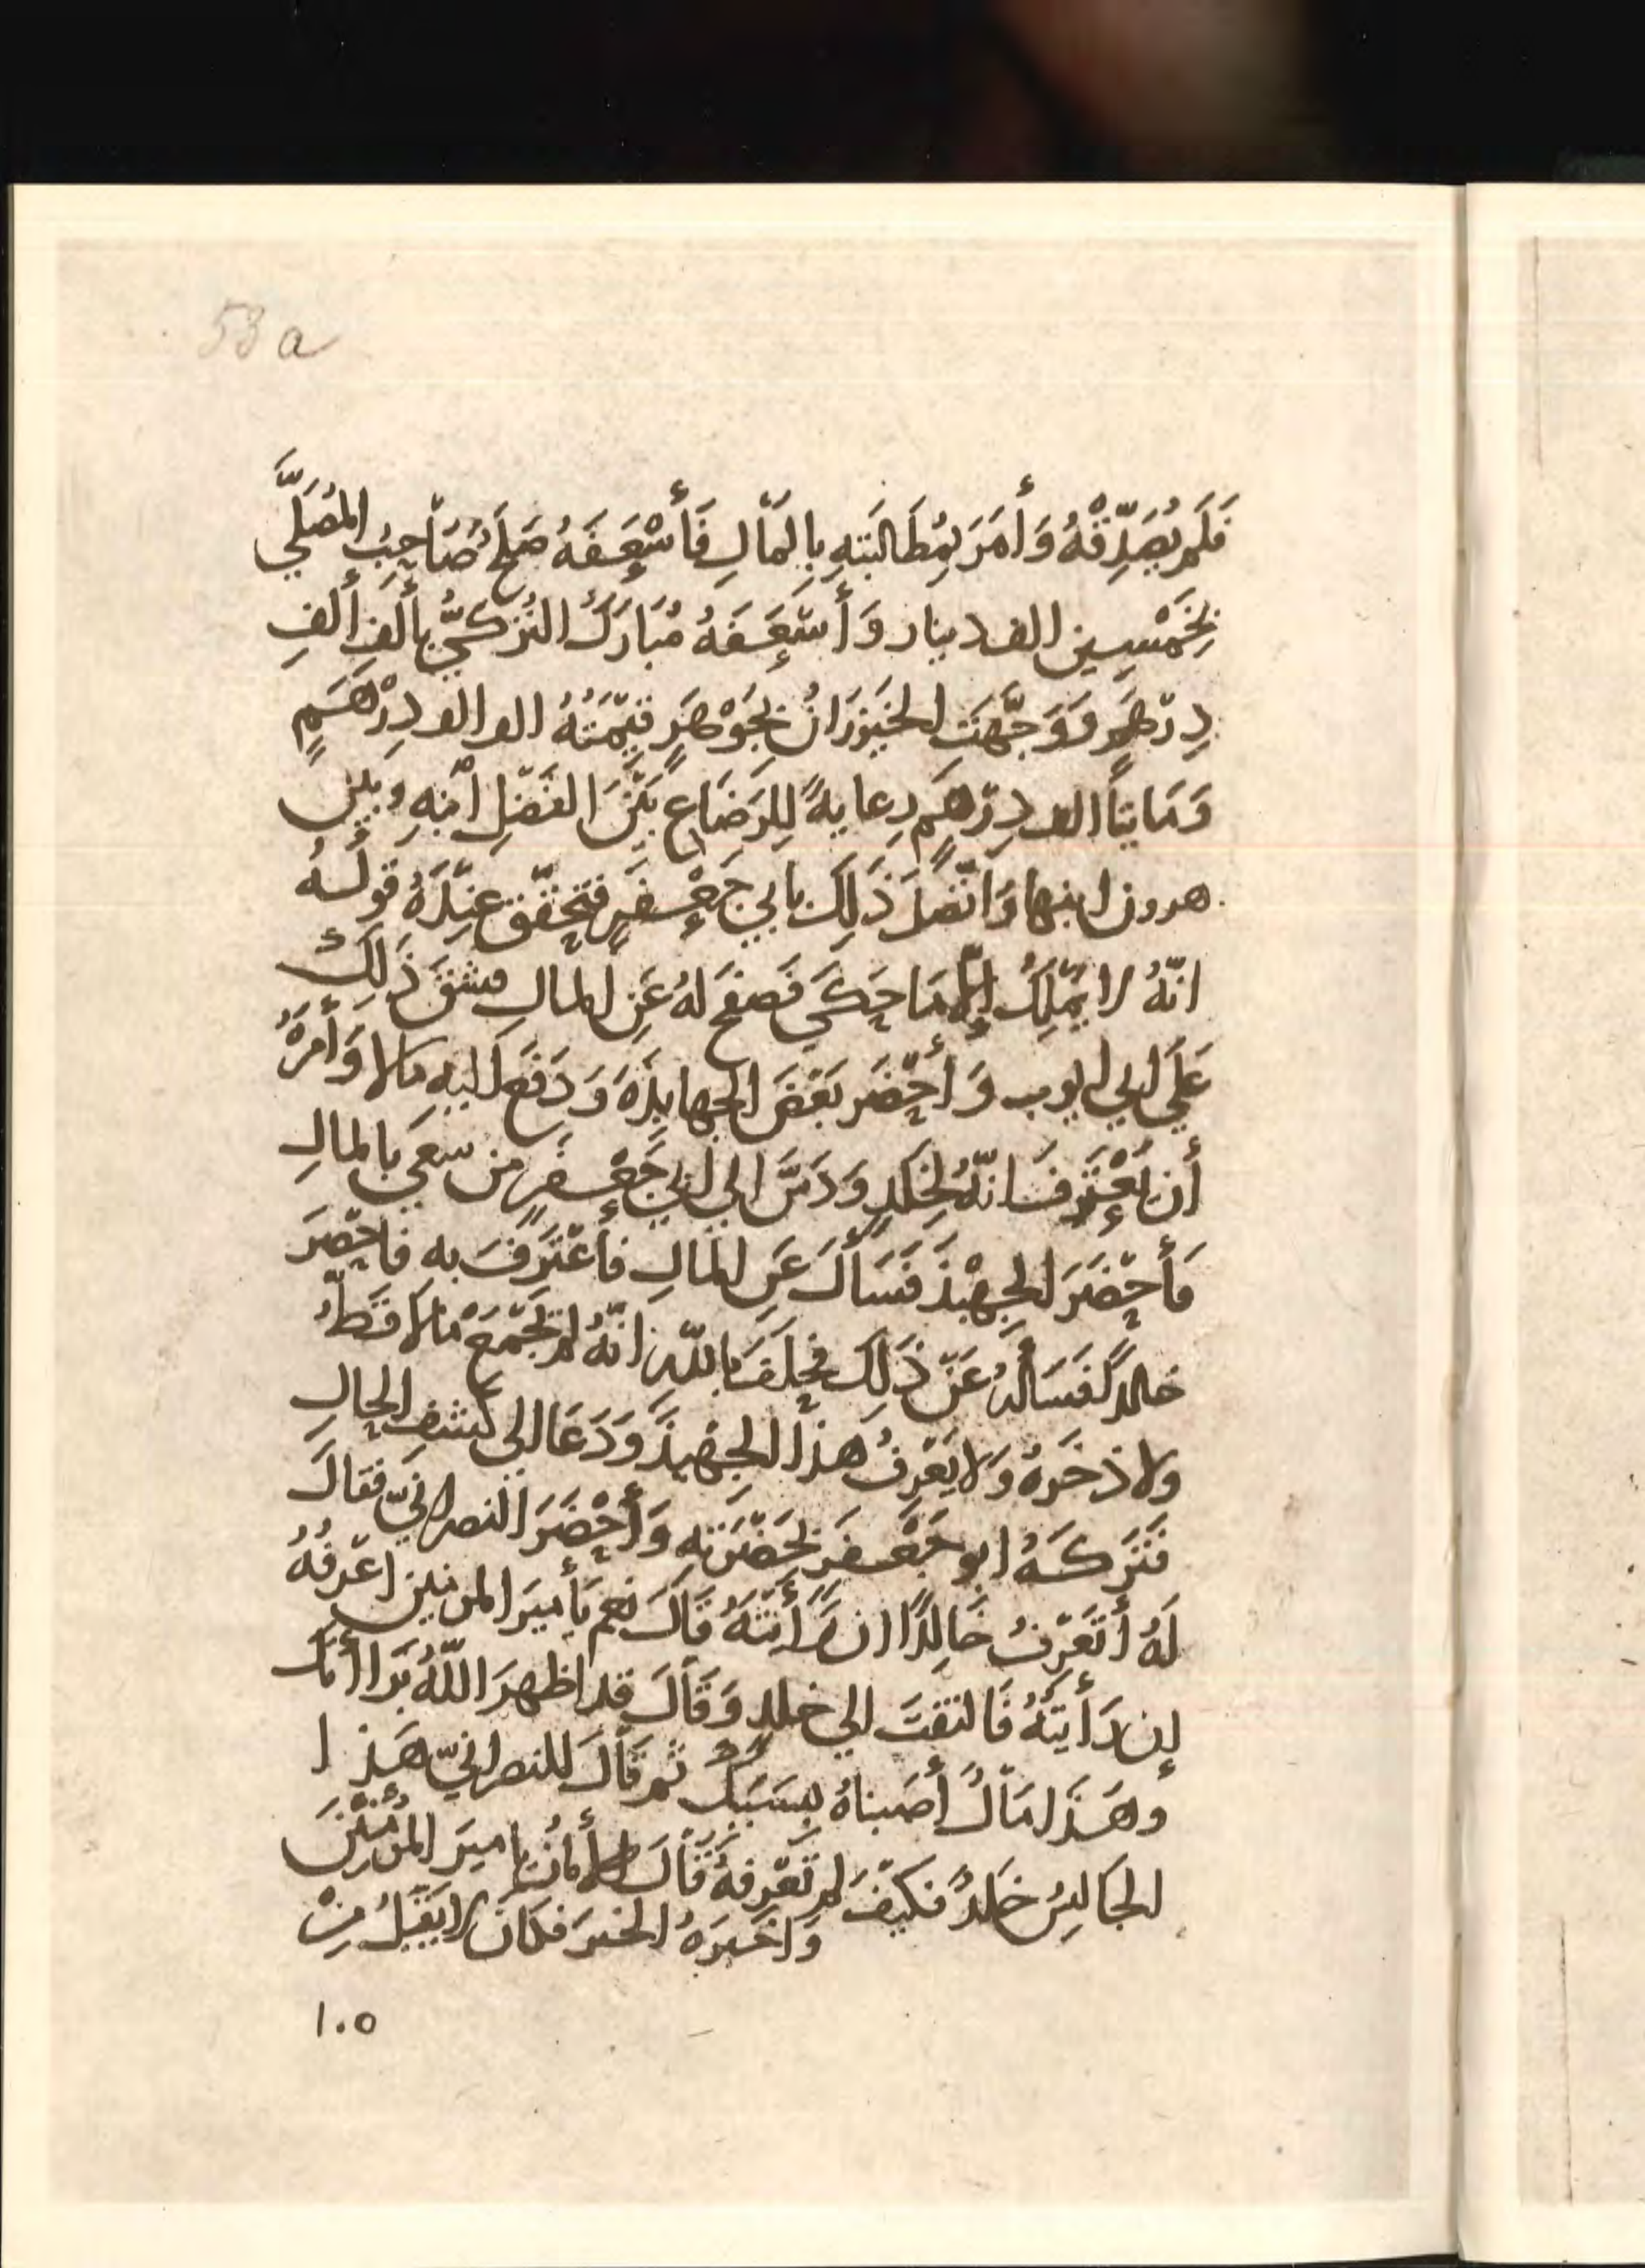 53 a
فَلَم يُصَدِّقْهُ وَأَمَرَ بِمُطَالَبَتِهِ بِالمَالِ فَأَسْعَفَهُ صَلحُ صَاحِبُ المُصَلَّي
بِخَمْسِين الف دينار وَأَسْعَفَهُ مُبَارَكُ التُرْكيُّ بِألف ألفِ
دِرْهَمٍ وَوَجَّهَتِ الخَيزُرَانُ بِجَوْهَرٍ قيْمَتهُ الف الف دِرْهَمٍ
وَمَايتا الف دِرْهَمٍ رِعايةً لِلرَضَاعِ بَيْنَ الفَضْلِ ابْنِهِ وبَيْن
هرون ابنها وَاتَّصَلَ ذَلِكَ بابي جَعْفَرٍ فَتحَقَّق عِنْدَهُ قَولُهُ
انّهُ لا يَمْلِكُ إلّا مَا حَكَي فَصفَح لهُ عَنِ المالِ فشقَ ذَلِكَ
عَلَي ابي ايوب وَأَحْضَر بَعْضَ الجهابِذَهَ وَدَفَعَ اليهِ مَالا وَأَمَرَهُ
أن يَعْتَرِفَ انّهُ لِخَلدٍ وَدَسَّ الي ابي جَعْفَرٍ من سعَي بالمالِ
فَأَحْضَرَ الجِهْبذَ فَسَأَلَ عَنِ المالِ فَأعْتَرَفَ به فاحْضَرَ
خالدًا فَسَأَلَهُ عَنْ ذَلِكَ فحلَفَ باللّهِ انّهُ لم يَجْمَعْ مالا قَطُّ
ولا ذخَرهُ وَلا يَعْرِفُ هَذا الجِهْبذَ وَدَعَا الى كَشفِ الحالِ
فَتَركهُ ابو جَعْفَرٍ بِحَضْرَتِهِ وَأَحْضَرَ النصرانيّ فقالَ
لَهُ أتَعْرِفُ خَالِدًا ان رَأَيْتَهُ قَالَ نعم يَأميرَ المومنين اعْرفُهُ
إن رَأيْتَهُ فَالتفتَ الي خلدٍ وَقَالَ قد اظهرَ اللّهُ بَرَااَتكَ
وهَذا مَالٌ أصَبناهُ بِسَبَبكَ ثم قَالَ للنصرانيّ هَذا
الجَالِسُ خَلدٌ فكيْفَ لم تَعْرِفهُ قَالَ الأَمانُ يا اميرَ المُؤمِنْينَ
وَاخبَرَهُ الخبرَ فكانَ لا يَقْبَلُ مِنْ
١٠٥